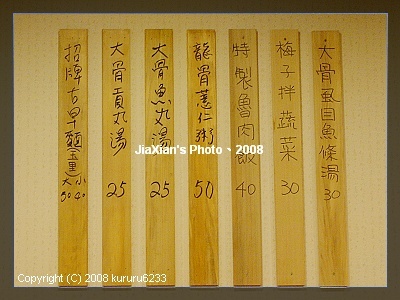 招牌古早麵(金星)
大 小
50 40
大骨貢丸湯
25
大骨魚丸湯
25
龍骨薏仁粥
50
特製魯肉飯
40
梅子拌蔬菜
30
大骨虱目魚條湯
30
JiaXian's Photo、2008
Copyright (C) 2008 kururu6233